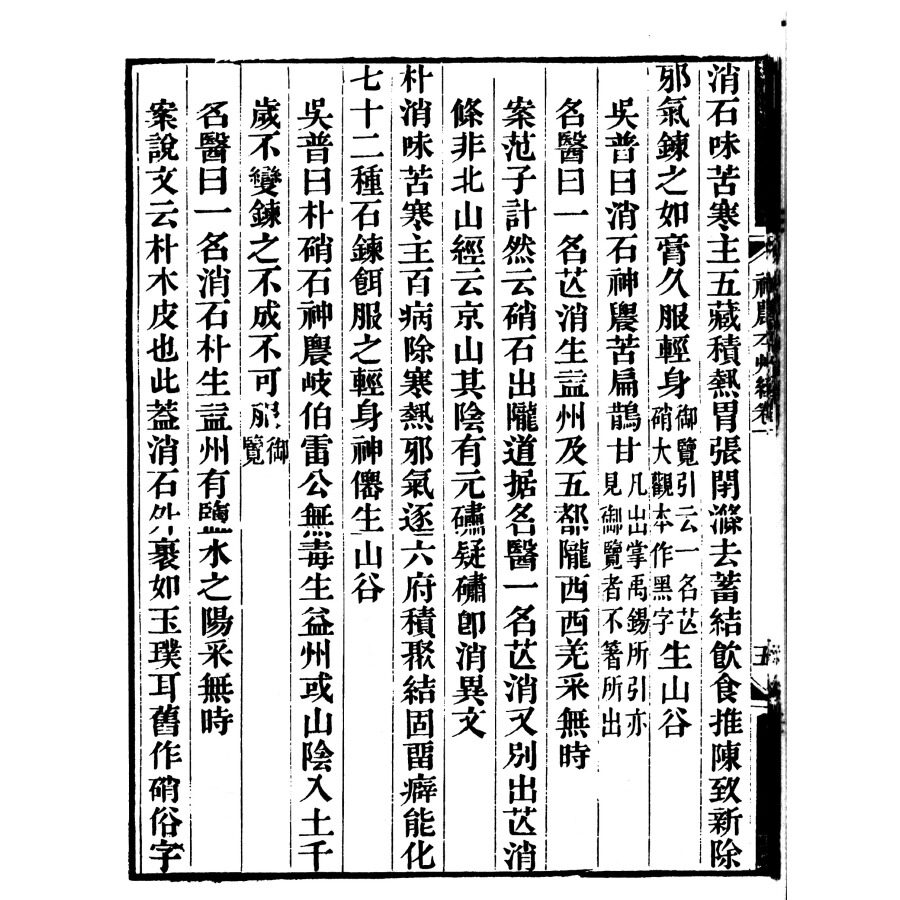 消石味苦寒主五藏積熱胃張閉滌去蓄結飲食推陳致新除
邪氣鍊之如膏久服輕身御覽引云一名芒硝大觀本作黑字生山谷
吳普曰消石神農苦扁鵲甘凡出掌禹錫所引亦見御覽者不箸所出
名醫曰一名芒消生益州及五都隴西西羌采無時
案范子計然云硝石出隴道据名醫一名芒消又別出芒消
條非北山經云京山其陰有元䃤疑䃤卽消異文
朴消味苦寒主百病除寒熱邪氣逐六府積聚結固留癖能化
七十二種石鍊餌服之輕身神僊生山谷
吳普曰朴硝石神農岐伯雷公無毒生益州或山陰入土千
歲不變鍊之不成不可服御覽
名醫曰一名消石朴生益州有鹽水之陽采無時
案說文云朴木皮也此蓋消石外裹如玉璞耳舊作硝俗字
神農本艸經卷一
五